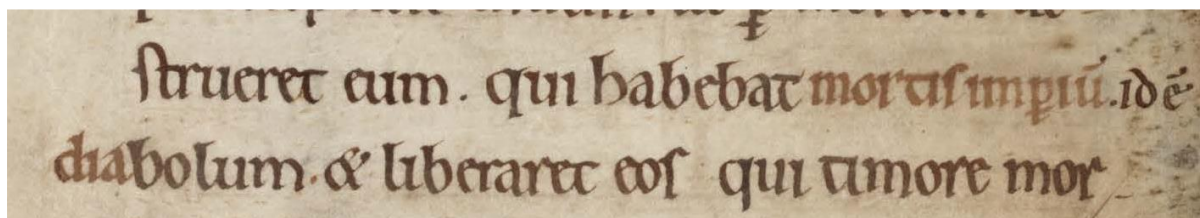 strueret eum. qui habebat mortis imꝑiū. id ē
diabolum. & liberaret eos qui timore mor